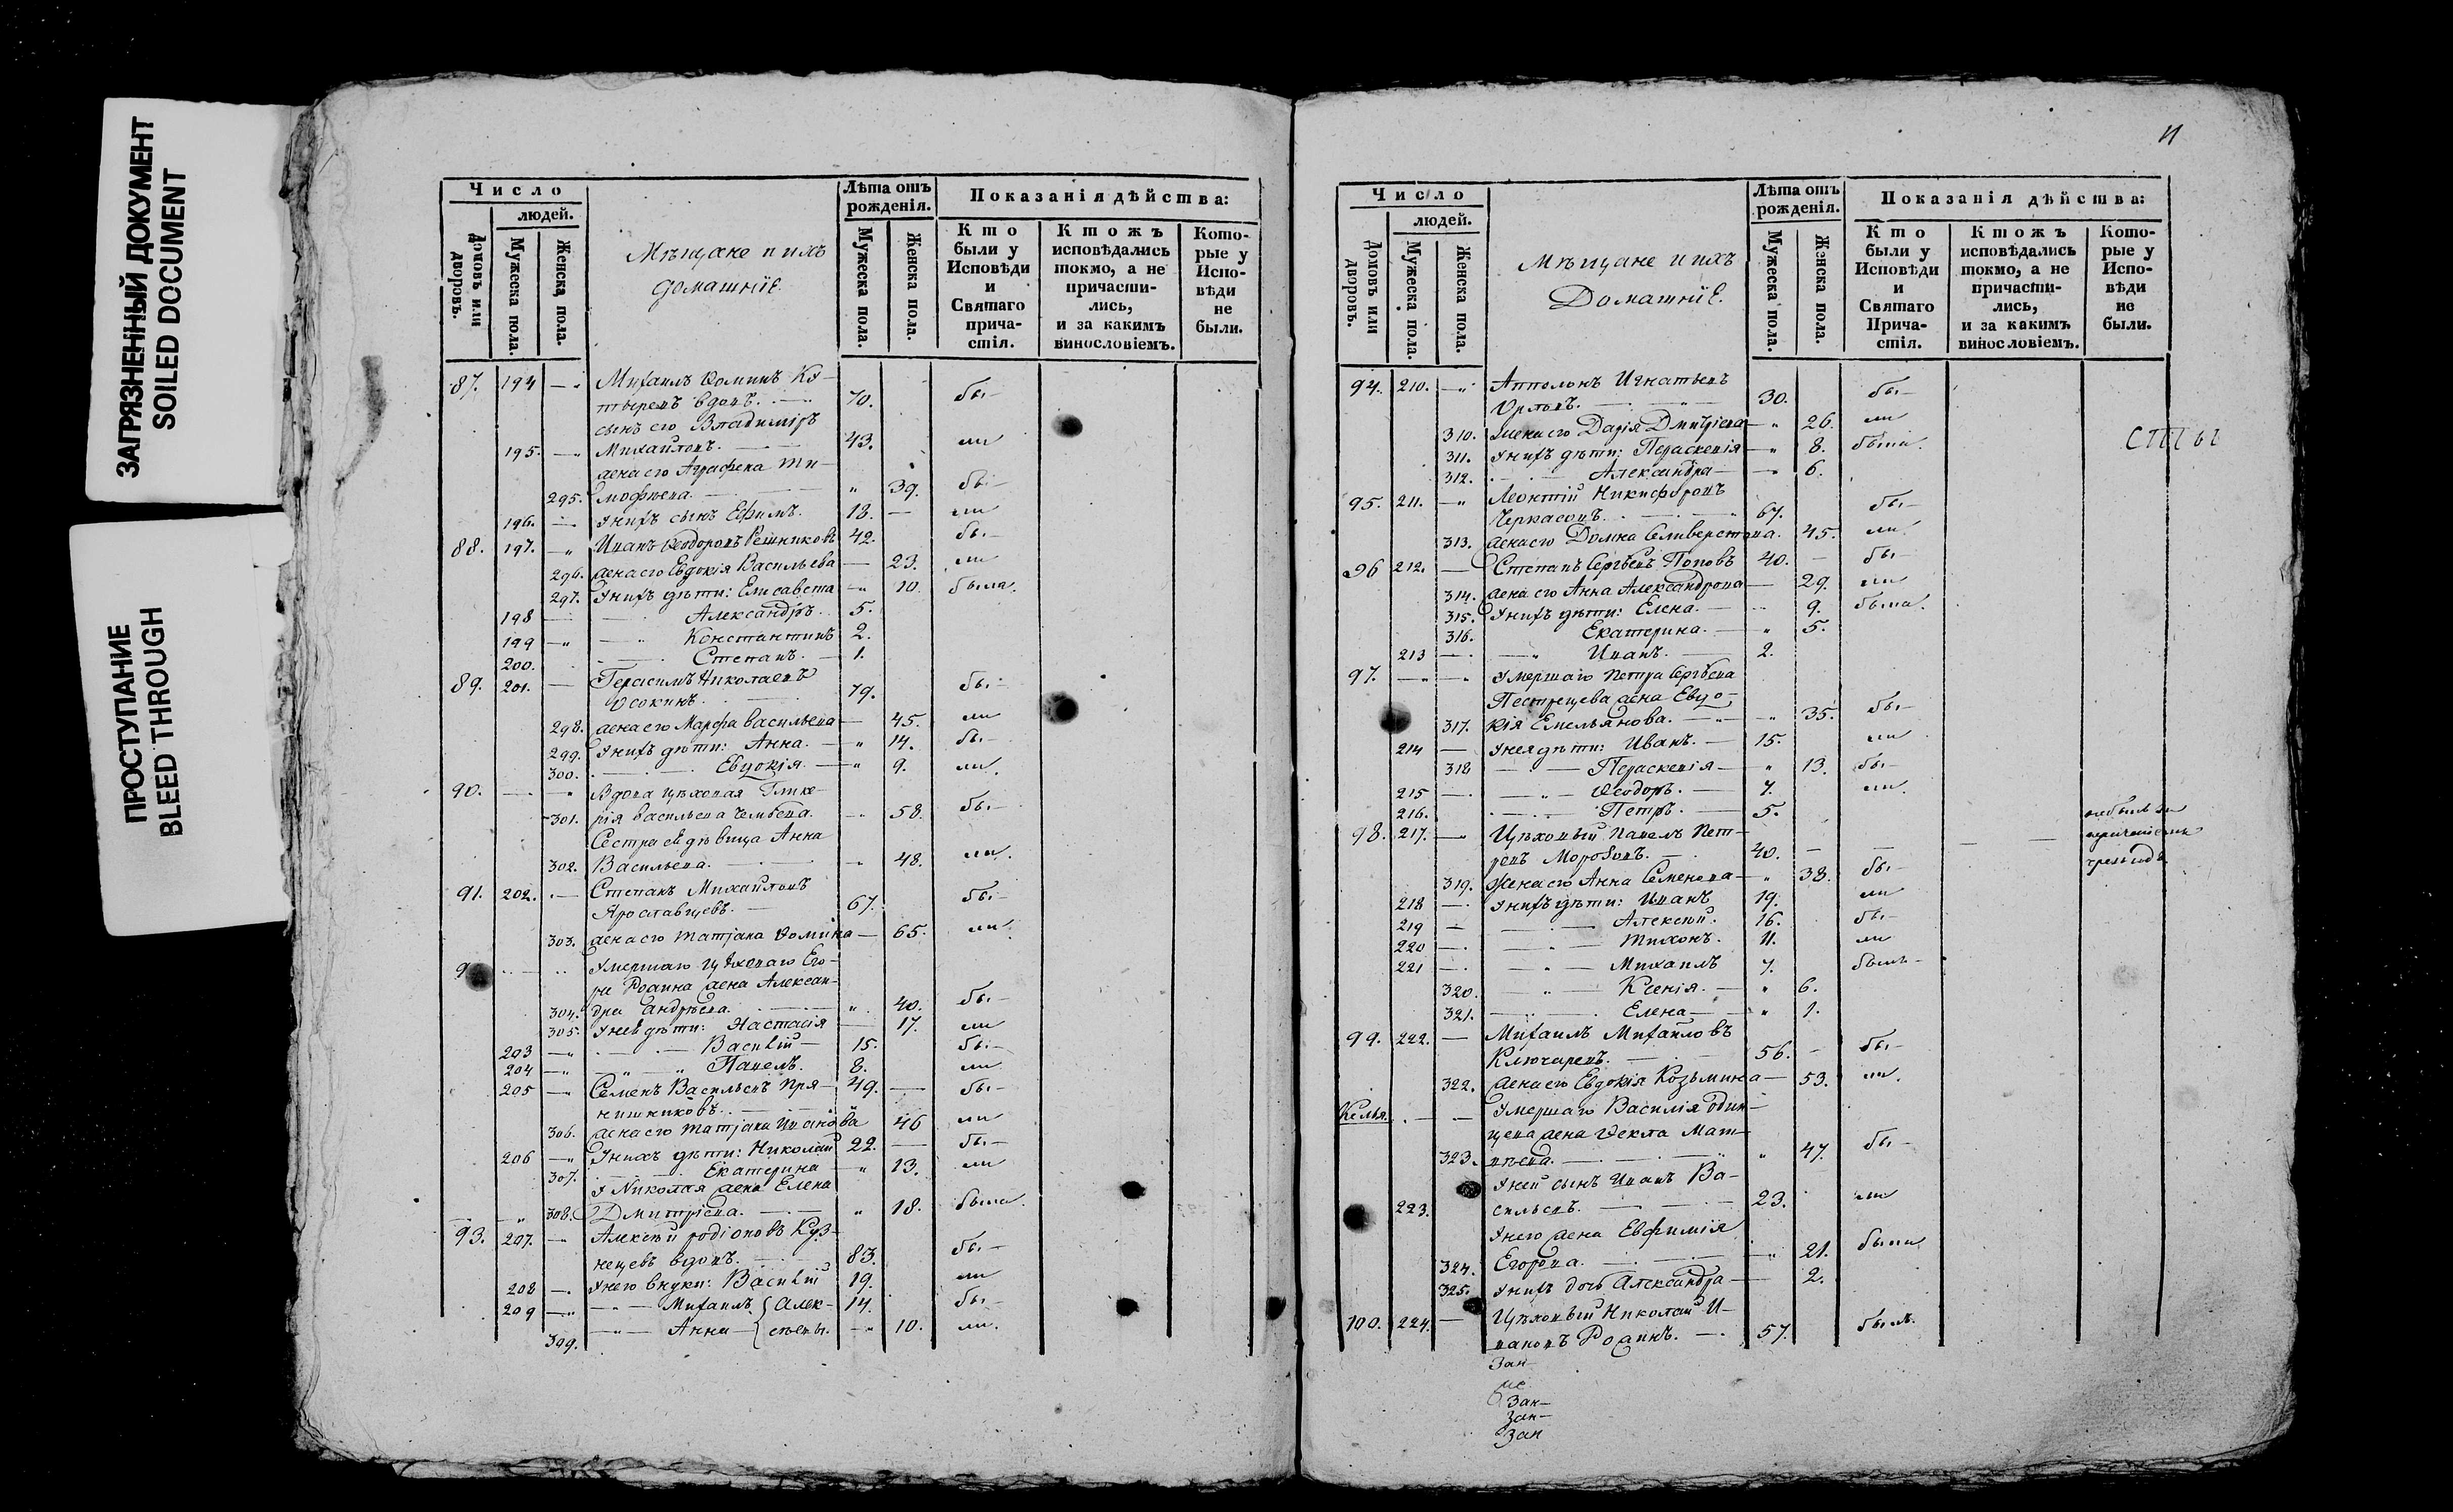 ЗАГРЯЗНЕННЫЙ ДОКУМЕНТ
SOILED DOCUMENT
ПРОСТУПАНИЕ
BLEED THROUGH
Число
людей.
Домовъ или дворовъ.
Мужеска пола.
Женска пола.
Мѣщане и ихъ
домашніе.
Лѣта отъ рожденія.
Мужеска пола.
Женска пола.
Показанія дѣйства:
Кто были у Исповѣди и Святаго прича-стія.
Ктожъ исповѣдались токмо, а не причасти-лись, и за какимъ винословіемъ.
Кото-рые у Испо-вѣди не были.
87. 194 Михаилъ Фоминъ Ко-
тыревъ вдовъ. 70. бы-
сынъ его Владиміръ
195. Михайловъ. 43. ли
жена его Аграфена Ти-
295. мофѣева. 39. бы-
196. у нихъ сынъ Ефимъ. 18. ли
88. 197. Иванъ Феодоровъ Решниковъ 42. бы-
296. жена его Евдокія Васильева 23. ли
297. у нихъ дѣти: Елисавета 10. была.
198 Александръ. 5.
199 Константинъ 2.
200. Степанъ. 1.
89. 201. Герасимъ Николаевъ
Осокинъ. 79. бы-
298. жена его Марфа Васильева 45. ли
299. у нихъ дѣти: Анна. 14. бы-
300. Евдокія. 9. ли.
90. Вдова цѣховая Глике-
301. рія Васильева 58. бы-
Сестра ея дѣвица Анна
302. Васильева. 48. ли.
91. 202. Степанъ Михайловъ
Ярославцевъ. 67. бы-
303. жена его Татіана Фомина 65. ли.
9 Умершаго цѣховаго Его-
ра Родина жена Алексан-
304. дра Андрѣева. 40. бы-
305. у нея дѣти: Настасія 17. ли
203 Василій 15. бы-
204 Павелъ. 8. ли
205 Семенъ Васильевъ Пря-
нишниковъ. 49. бы-
306. жена его Татіана Иванова 46 ли
206 у нихъ дѣти: Николай 22. бы-
307. Екатерина 13. ли
у Николая жена Елена
308. Дмитріева. 18. была.
93. 207. Алексѣй Родіоновъ Куз-
нецевъ вдовъ. 83. бы-
208 у него внуки: Василій 19. ли
209 Михаилъ { Алек- 14. бы-
309. Анна { сѣевы. 10. ли.
11
Число
людей.
Домовъ или дворовъ.
Мужеска пола.
Женска пола.
Мѣщане и ихъ
Домашніе.
Лѣта отъ рожденія.
Мужеска пола.
Женска пола.
Показанія дѣйства:
Кто были у Исповѣди и Святаго Прича-стія.
Ктожъ исповѣдались токмо, а не причасти-лись, и за какимъ винословіемъ.
Кото-рые у Испо-вѣди не были.
94. 210. Апполонъ Игнатьевъ
Орловъ. 30. бы-
310. жена его Дарія Дмитріева 26. ли
311. у нихъ дѣти: Параскевія 8. была.
312. Александра 6.
95. 211. Леонтій Никифоровъ
Черкасовъ. 67. бы-
313. жена его Домна Селиверстова. 45. ли.
96 212. Степанъ Сергѣевъ Поповъ 40. бы-
314. жена его Анна Александрова 29. ли
315. у нихъ дѣти: Елена. 9. была.
316. Екатерина. 5.
213 Иванъ. 2.
97. Умершаго Петра Сергѣева
Пестрецева жена Евдо-
317. кія Емельянова. 35. бы-
214 у нея дѣти: Иванъ. 15. ли
318 Параскевія 13. бы-
215 Феодоръ. 7. ли.
216. Петръ. 5.
98. 217. Цѣховый Павелъ Пет-
ровъ Морозовъ. 40.
319. жена его Анна Семенова 38. бы-
218 у нихъ дѣти: Иванъ 19. ли
219 Алексѣй. 16. бы-
220 Тихонъ. 11. ли
221 Михаилъ 7. былъ
320. Ксенія. 6.
321. Елена 1.
99. 222. Михаилъ Михайловъ
Ключаревъ. 56. бы-
322. жена его Евдокія Козьмина 53. ли.
Келья. Умершаго Василія Один-
цева жена Фекла Мат-
323. вѣева. 47. бы-
у ней сынъ Иванъ Ва-
223. сильевъ. 23. ли
у него жена Евфимія
324. Егорова. 21. была
325. у нихъ дочь Александра 2.
100. 224. Цѣховый Николай И-
вановъ Родинъ. 57. былъ.